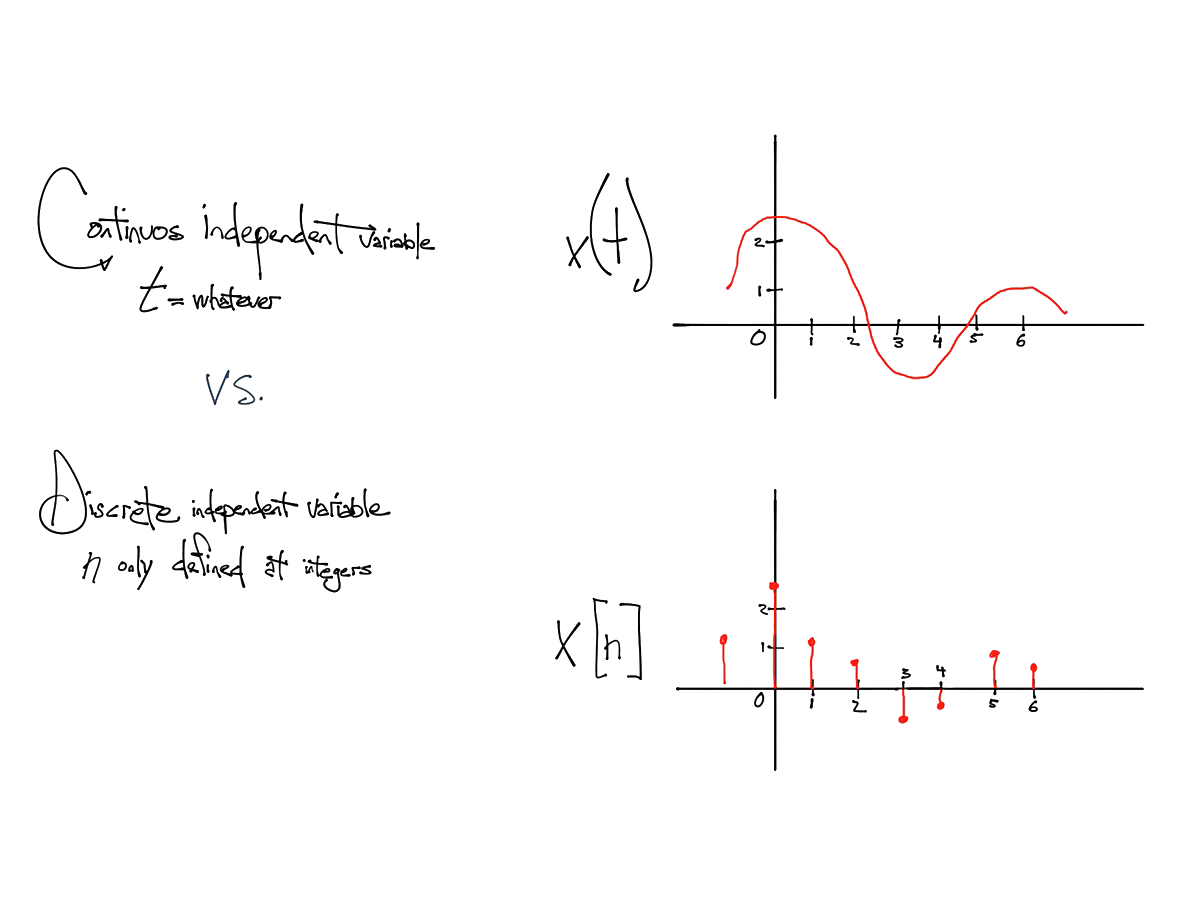 Continuos independent variable
t = whatever
VS.
Discrete independent variable
n only defined at integers
x(t)
2
1
0 1 2 3 4 5 6
X[n]
2
1
3 4
0 1 2 5 6